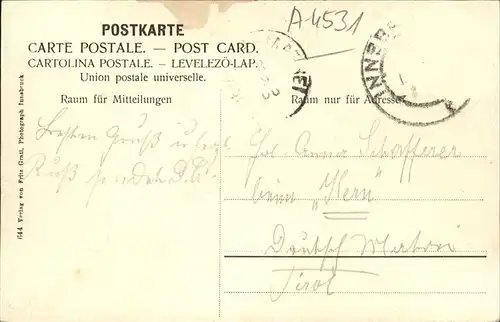 A 4531
POSTKARTE
CARTE POSTALE. — POST CARD.
CARTOLINA POSTALE. — LEVELEZŐ-LAP.
Union postale universelle.
Raum für Mitteilungen
Raum nur für Adresse
INNSB
644 Verlag von Fritz Gratl, Photograph, Innsbruck.
Besten Gruß u
Kuß sendet
Anna Schafferer
beim „Kern"
Deutsch Matrei
Tirol